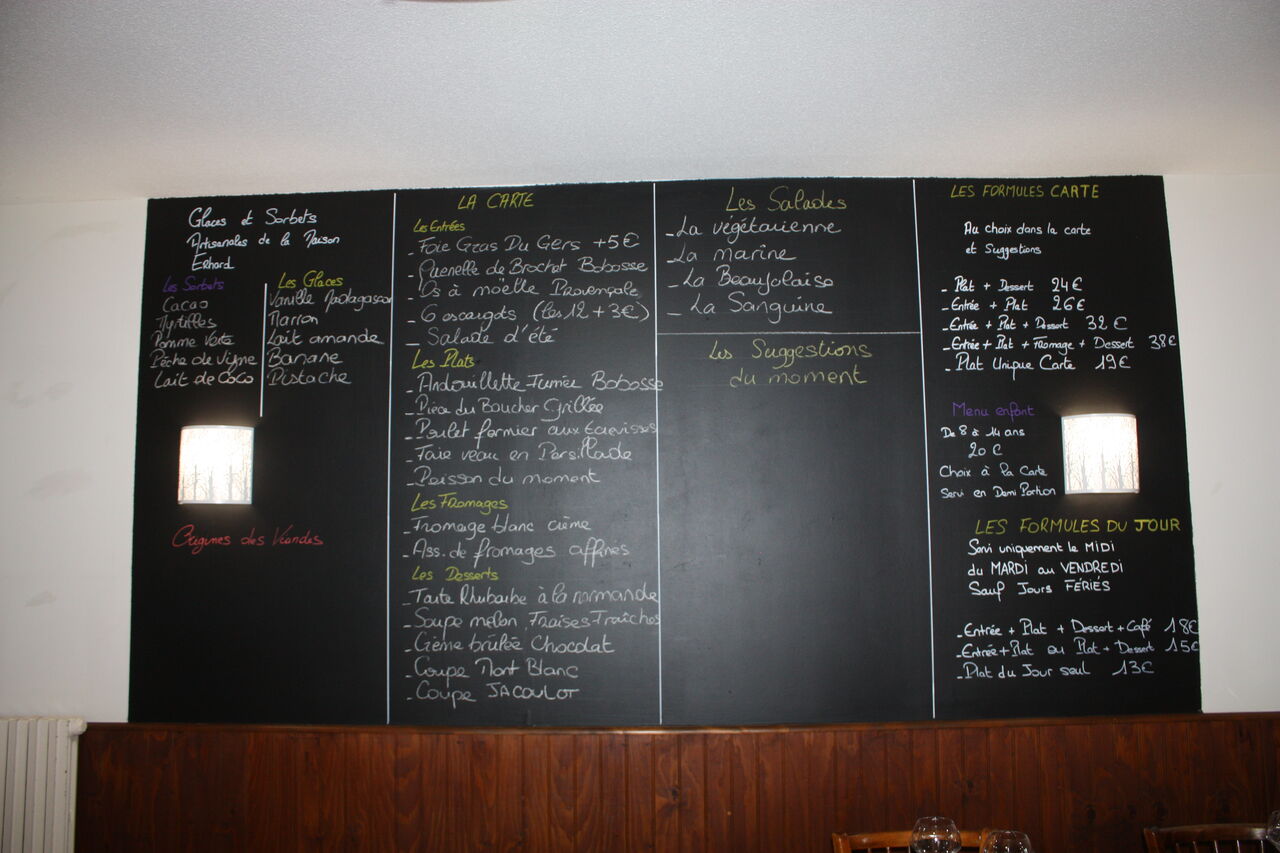 Glaces et Sorbets
Artisanales de la Maison
Erhard
Les Sorbets
Cacao
Myrtilles
Pomme Verte
Pêche de Vigne
Lait de Coco
Les Glaces
Vanille Madagascar
Marron
Lait amande
Banane
Pistache
Origines des Viandes
LA CARTE
Les Entrées
- Foie Gras Du Gers +5€
- Quenelle de Brochet Bobosse
- Os à moëlle Provençale
- 6 escargots (les 12 +3€)
- Salade d'été
Les Plats
- Andouillette Fumée Bobosse
- Pièce du Boucher Grillée
- Poulet fermier aux Ecrevisses
- Foie veau en Persillade
- Poisson du moment
Les Fromages
- Fromage blanc crème
- Ass. de fromages affinés
Les Desserts
- Tarte Rhubarbe à la normande
- Soupe melon Fraises Fraîches
- Crème brûlée Chocolat
- Coupe Mont Blanc
- Coupe JACOULOT
Les Salades
- La végétarienne
- La marine
- La Beaujolaise
- La Sanguine
Les Suggestions
du moment
LES FORMULES CARTE
Au choix dans la carte
et Suggestions
- Plat + Dessert 24€
- Entrée + Plat 26€
- Entrée + Plat + Dessert 32€
- Entrée + Plat + Fromage + Dessert 38€
- Plat Unique Carte 19€
Menu enfant
De 8 à 14 ans
20€
Choix à la Carte
Servi en Demi Portion
LES FORMULES DU JOUR
Servi uniquement le MIDI
du MARDI au VENDREDI
Sauf Jours FÉRIÉS
- Entrée + Plat + Dessert + Café 18€
- Entrée + Plat ou Plat + Dessert 15€
- Plat du Jour seul 13€